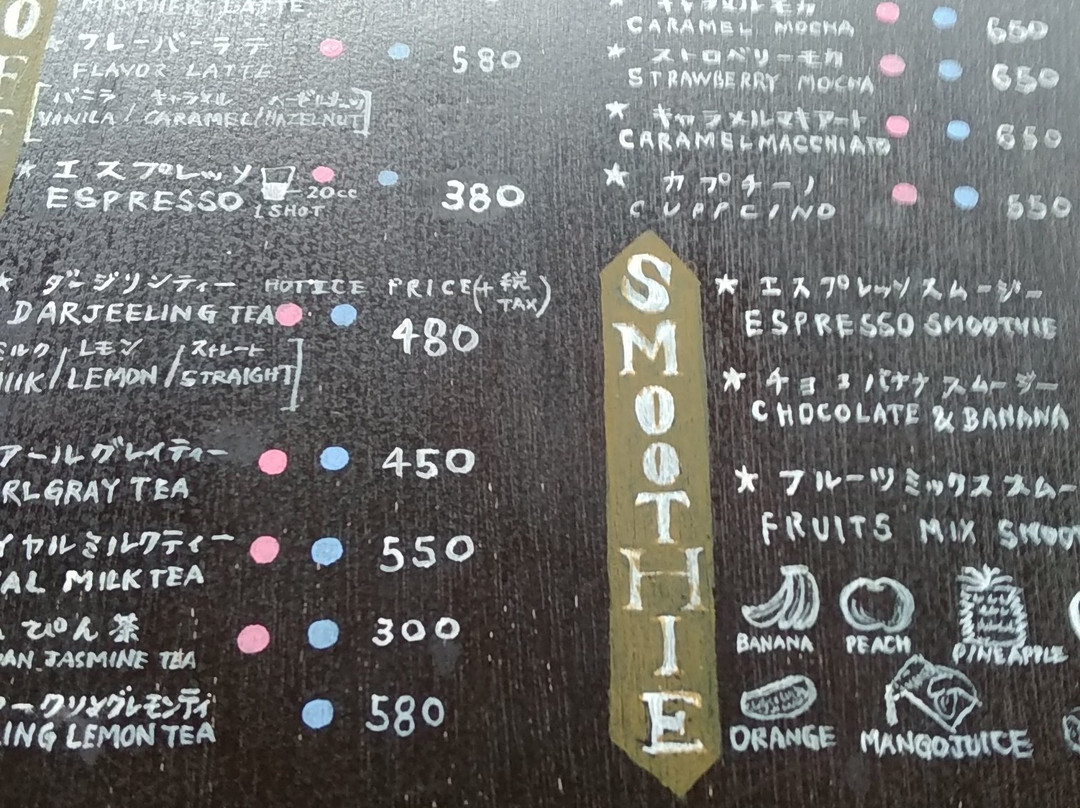 O
F
MOTHER LATTE
フレーバーラテ
FLAVOR LATTE 580
バニラ / キャラメル ヘーゼルナッツ
VANILA / CARAMEL/HAZELNUT
★ エスプレッソ
ESPRESSO 20cc 1SHOT 380
★ ダージリンティー HOT ICE PRICE(+税 TAX)
DARJEELING TEA 480
ミルク / レモン / ストレート
MILK / LEMON / STRAIGHT
アールグレイティー
RLGRAY TEA 450
イヤルミルクティー
AL MILK TEA 550
んぴん茶
AN JASMINE TEA 300
ークリングレモンティ
LING LEMON TEA 580
★ キャラメルモカ
CARAMEL MOCHA 650
★ ストロベリーモカ
STRAWBERRY MOCHA 650
★ キャラメルマキアート
CARAMELMACCHIATO 650
★ カプチーノ
CUPPCINO 550
SMOOTHIE
★ エスプレッソスムージー
ESPRESSO SMOOTHIE
★ チョコバナナスムージー
CHOCOLATE & BANANA
★ フルーツミックススムー
FRUITS MIX SMOOT
BANANA PEACH PINEAPPLE
ORANGE MANGOJUICE